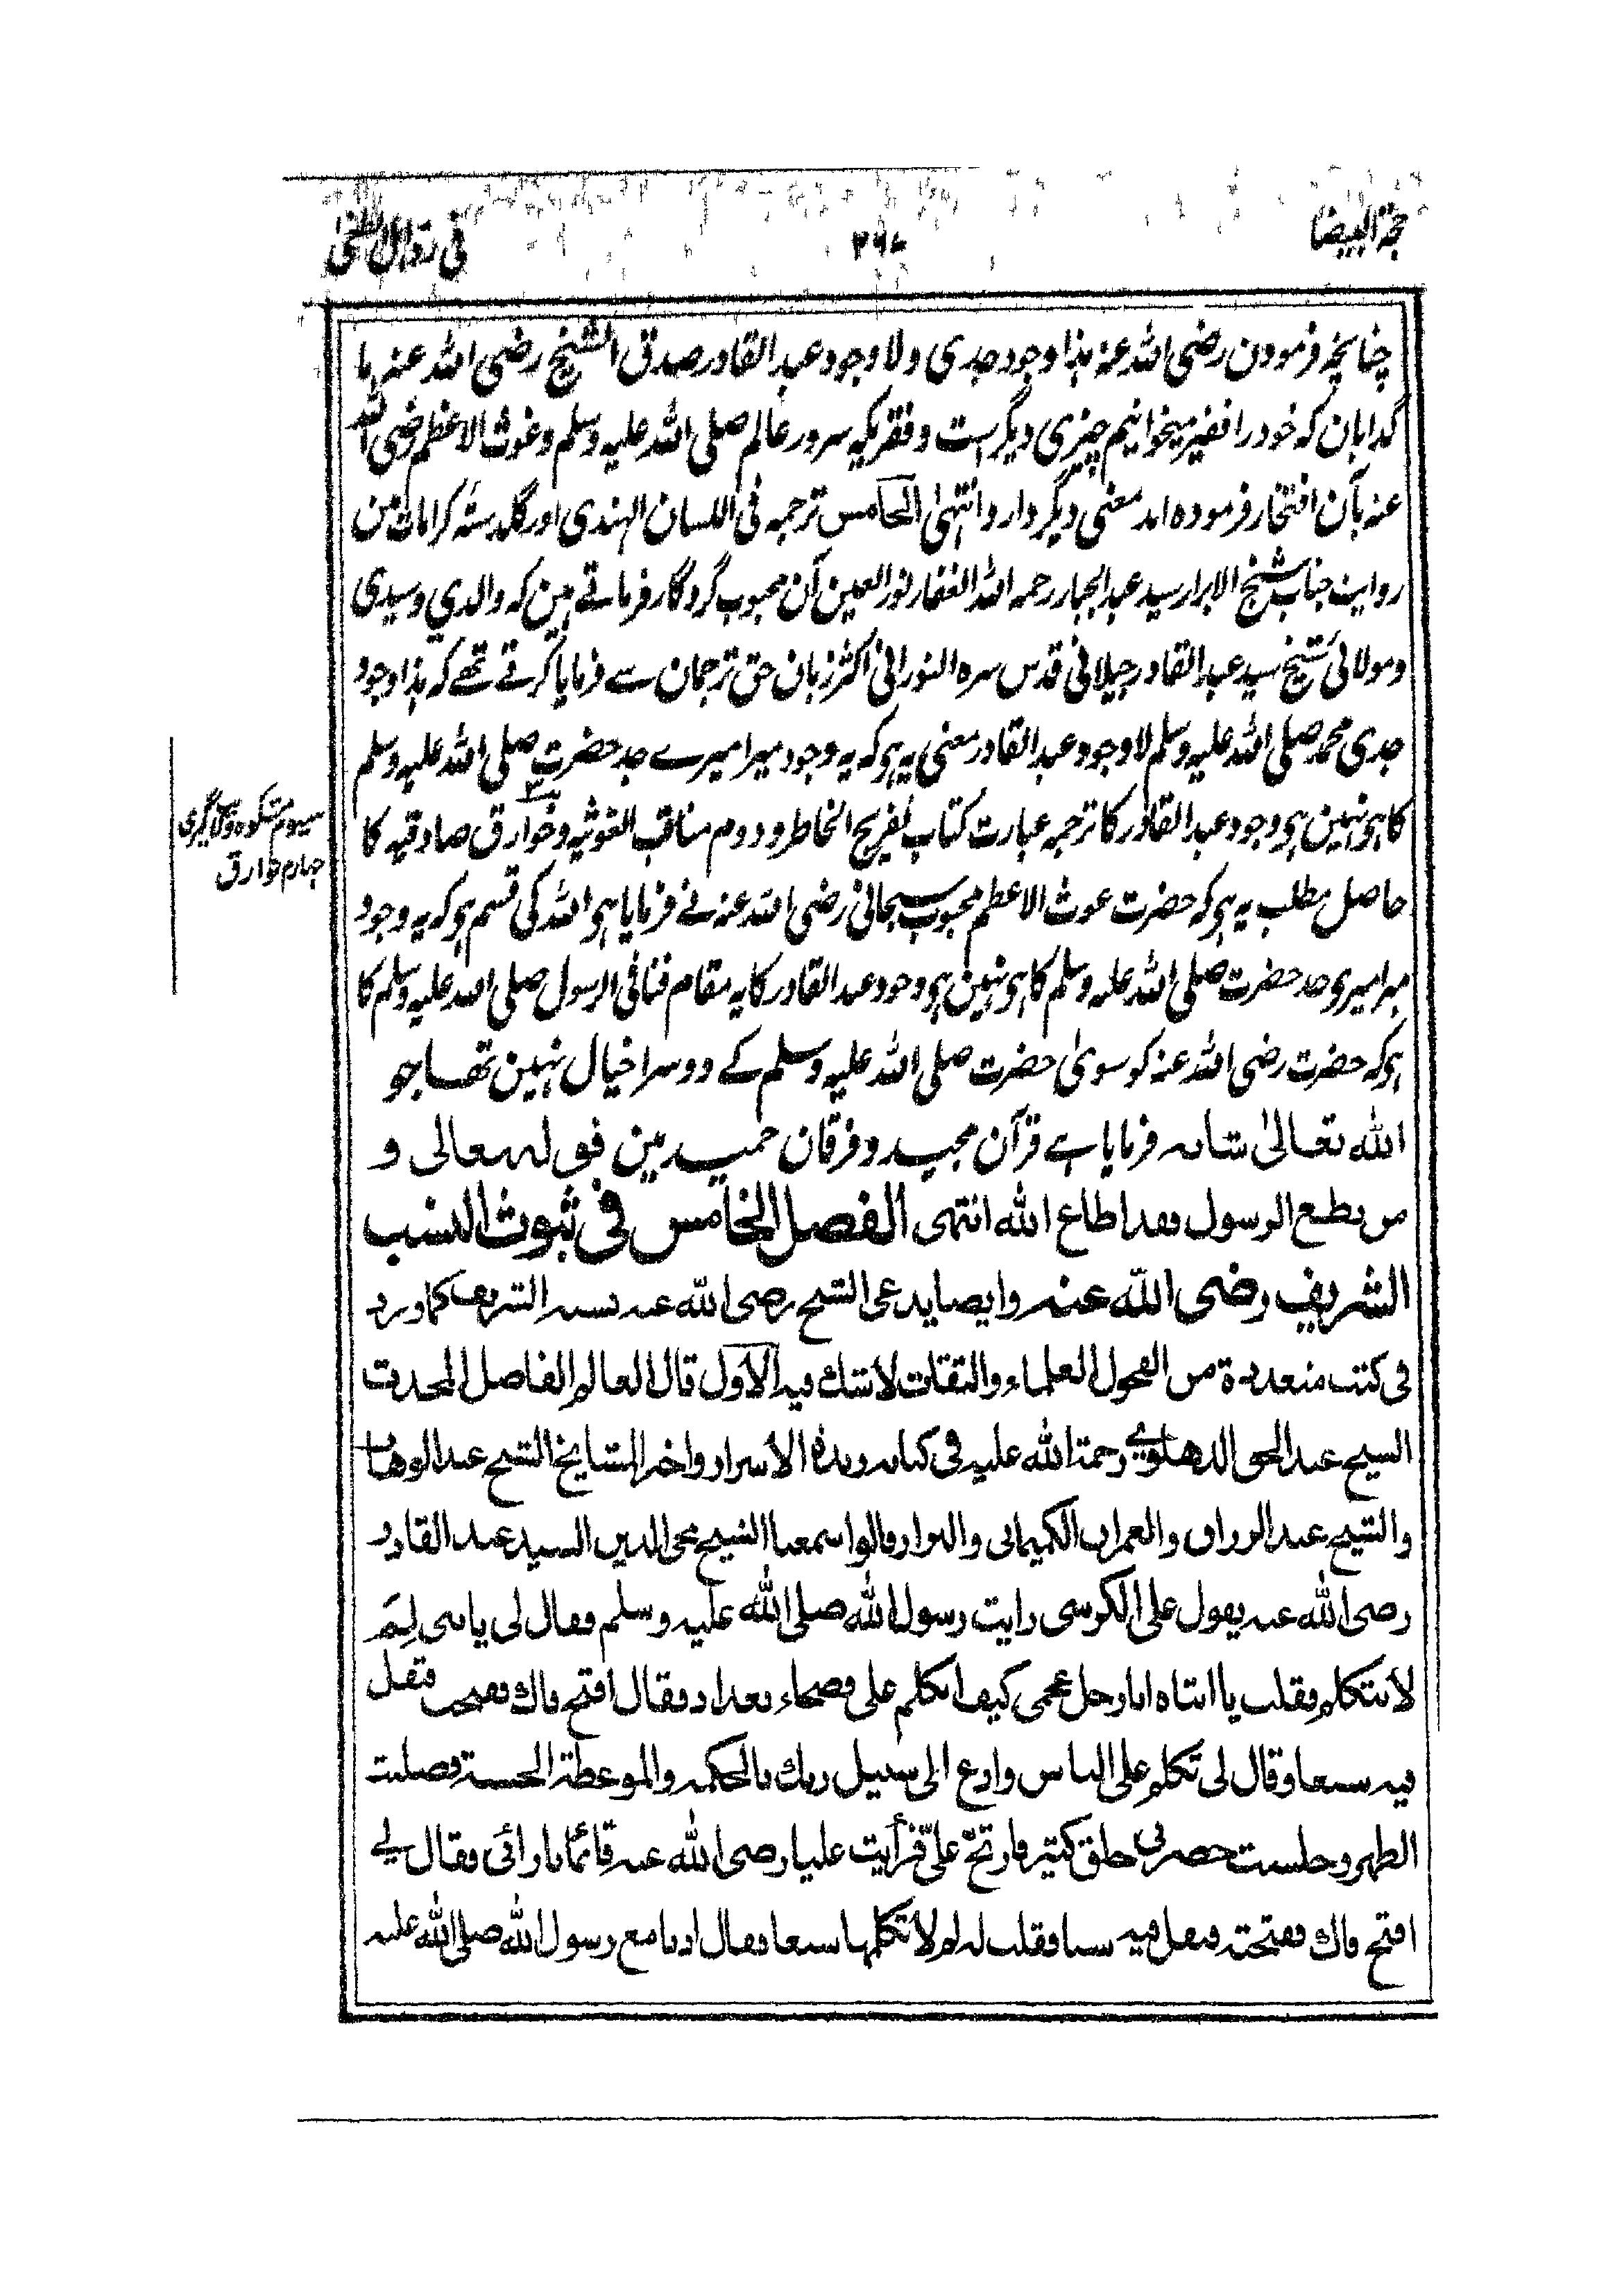 حجة البیضا
فی رد اہل الطغی
چنانچہ فرمودن رضی اللہ عنہ ہذا وجود جدی و لا وجود عبد القادر صدق الشیخ رضی اللہ عنہ ما
گدایان کہ خود را فقیر میخوانیم چیزی دیگر است و فقریکہ سرور عالم صلی اللہ علیہ وسلم و غوث الاعظم رضی اللہ
عنہ بآن افتخار فرمودہ اند معنی دیگر دارد انتہیٰ الخامس ترجمہ فی اللسان الہندی اور گلدستہ کرامات من
روایت جناب شیخ الابرار سید عبد الجبار رحمہ اللہ الغفار نور العین آن محبوب کردگار فرماتے ہین کہ والدي و سیدی
و مولائی شیخ سید عبد القادر جیلانی قدس سرہ النورانی اکثر زبان حق ترجمان سے فرمایا کرتے تھے کہ ہذا وجود
جدی محمد صلی اللہ علیہ وسلم لا وجود عبد القادر معنی یہ ہی کہ یہ وجود میرا میرے جد حضرت صلی اللہ علیہ وسلم
کا ہی نہین ہی وجود عبد القادر کا ترجمہ عبارت کتاب تفریح الخاطر و دوم مناقب الغوثیہ و خوارق صادقیہ کا
سیوم شکوہ
چہارم خوارق
حاصل مطلب یہ ہی کہ حضرت غوث الاعظم محبوب سبحانی رضی اللہ عنہ نے فرمایا ہی اللہ کی قسم ہی کہ یہ وجود
میرا میری جد حضرت صلی اللہ علیہ وسلم کا ہی نہین ہی وجود عبد القادر کا یہ مقام فنا فی الرسول صلی اللہ علیہ وسلم کا
ہی کہ حضرت رضی اللہ عنہ کو سویٰ حضرت صلی اللہ علیہ وسلم کے دوسرا خیال نہین تھا جو
اللہ تعالیٰ شانہ فرمایا ہے قرآن مجید و فرقان حمید مین قولہ تعالی و
من یطع الرسول فقد اطاع الله انتهى الفصل الخامس فی ثبوت النسب
الشریف رضی اللّه عنه وایضا یدعی الشیخ رضی اللّه عنه نسبه الشریف كما ورد
فی کتب متعددة من الفحول العلماء والثقات لا شك فیه الاول قال العالم الفاضل المحدث
الشیخ عبد الحق الدهلوي رحمة الله علیه فی کتابه زبدة الاسرار واخبر المشایخ الشیخ عبد الوهاب
والشیخ عبد الرزاق والعمران الکمیماتی والبزار قالوا سمعنا الشیخ محی الدین السید عبد القادر
رضی الله عنه یقول علی الکرسی رایت رسول الله صلی الله علیه وسلم فقال لی یا بنی لِمَ
لا تتکلم فقلت یا ابتاه انا رجل عجمی کیف اتکلم علی فصحاء بغداد فقال افتح فاك ففتحت فتفل
فیه سبعا وقال لی تکلم علی الناس وادع الی سبیل ربك بالحکمة والموعظة الحسنة فصلیت
الظهر وجلست حضرنی خلق کثیر فارتجّ علیّ فرأیت علیا رضی الله عنه قائما بازائی فقال لي
افتح فاك ففتحته فتفل فیه ستا فقلت له لم لا تکملها سبعا فقال ادبا مع رسول الله صلی الله علیه